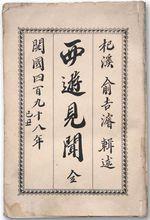 杞溪 俞吉濬 輯述
西遊見聞 全
開國四百九十八年
己丑